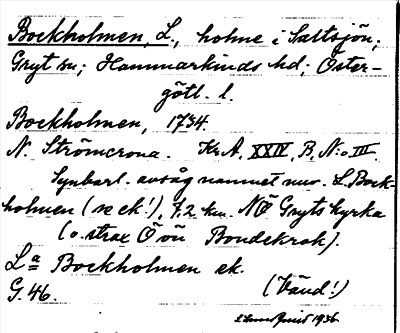 Bockholmen, L., holme i Saltsjön;
Gryt sn; Hammarkinds hd; Öster-
götl. l.
Bockholmen, 1734.
N. Strömcrona. Kr. A. XXIV, B, N:o III.
Synbarl. avsåg namnet nuv. L. Bock-
holmen (se ek!), 7,2 km. NÖ Gryts kyrka
(o. strax Ö om Bondekrok).
La Bockholmen ek.
G. 46.
(Vänd!)
1936